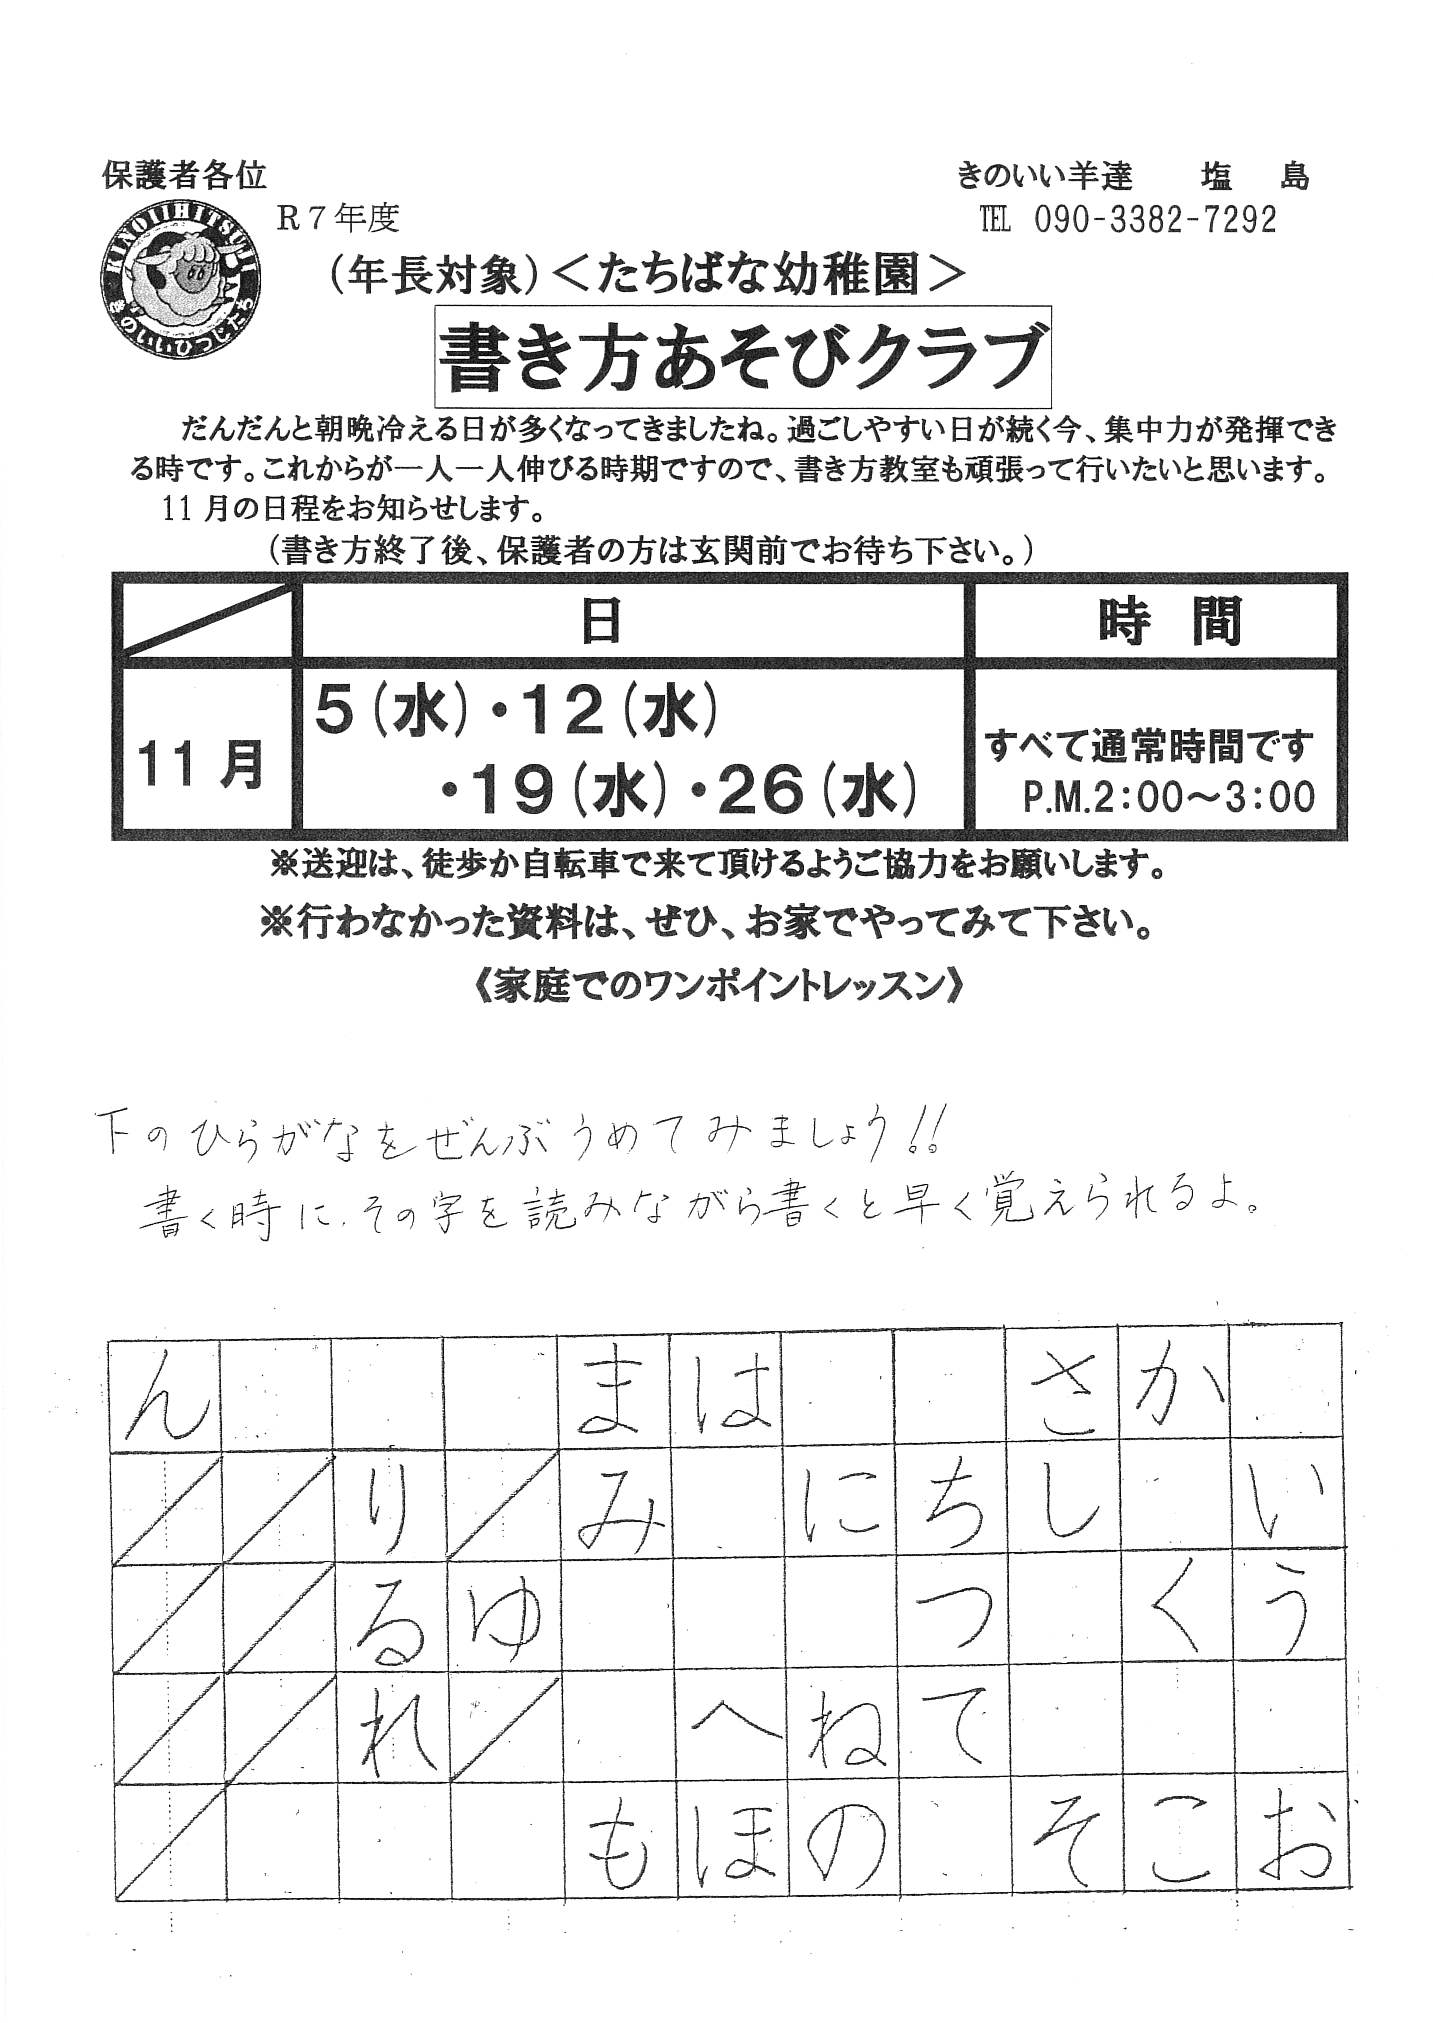 保護者各位
きのいい羊達 塩 島
R7年度
℡ 090-3382-7292
KINOIIHITSUJI
きのいいひつじたち
（年長対象）＜たちばな幼稚園＞
書き方あそびクラブ
だんだんと朝晩冷える日が多くなってきましたね。過ごしやすい日が続く今、集中力が発揮でき
る時です。これからが一人一人伸びる時期ですので、書き方教室も頑張って行いたいと思います。
11月の日程をお知らせします。
（書き方終了後、保護者の方は玄関前でお待ち下さい。）
日 時 間
11月
5（水）・12（水）
・19（水）・26（水）
すべて通常時間です
P.M.2：00～3：00
※送迎は、徒歩か自転車で来て頂けるようご協力をお願いします。
※行わなかった資料は、ぜひ、お家でやってみて下さい。
《家庭でのワンポイントレッスン》
下のひらがなをぜんぶうめてみましょう!!
書く時に、その字を読みながら書くと早く覚えられるよ。
ん ま は さ か
り み に ち し い
る ゆ つ く う
れ へ ね て
も ほ の そ こ お